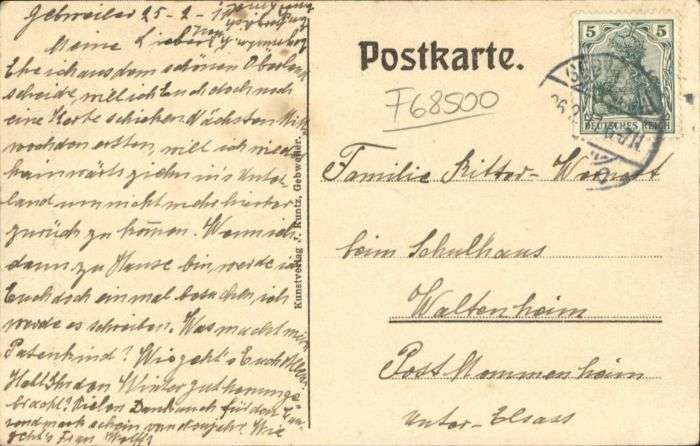 Gebweiler 25-2-
Meine Lieben
Ehe ich aus dem schönen Oberland
scheide, will ich Euch doch noch
eine Karte schicken Nächsten Mitt
wochen ersten, will ich wieder
heimwärts ziehn in's Unter-
land um nicht mehr hierher
zurück zu kommen. Wenn ich
dann zu Hause bin, werde ich
Euch doch einmal besuchen, ich
werde es schreiben. Was macht mein
Patenkind? Wie geht's Euch Allen,
Habt Ihr den Winter gut herumge
bracht? Vielen Dank auch für den
von Neujahr. Wie
geht's Frau Wolff?
Kunstverlag J. Kuntz, Gebweiler.
Postkarte.
F68500
5 5
DEUTSCHES REICH
Familie Ritter-Wernert
beim Schulhaus
Waltenheim
Post Mommenheim
Unter-Elsass